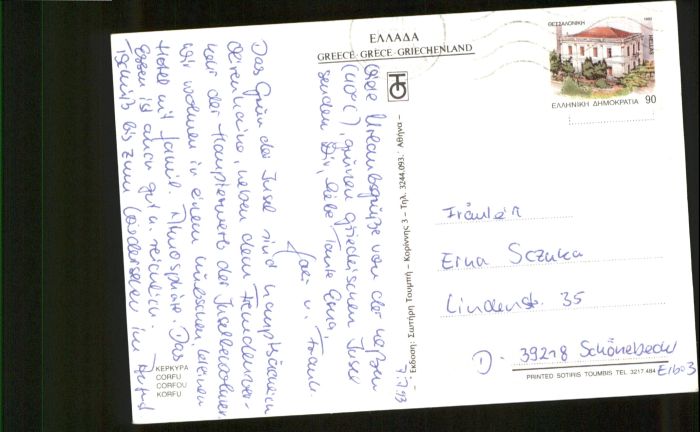 ΕΛΛΑΔΑ
GREECE·GRECE·GRIECHENLAND
ΘΕΣΣΑΛΟΝΙΚΗ
HELLAS
ΕΛΛΗΝΙΚΗ ΔΗΜΟΚΡΑΤΙΑ 90
7.7.93
Liebe Urlaubsgrüße von der heißen
(40°C), grünen griechischen Insel
senden Dir, liebe Tante Erna,
u. Frank.
Das Grün der Insel sind hauptsächlich
Olivenhaine, neben dem Fremdenver-
kehr der Haupterwerb der Inselbewohner
Wir wohnen in einem hübschen kleinen
Hotel mit famil. Atmosphäre. Das
Essen ist auch gut u. reichlich.
Tschüß bis zum Wiedersehen im
Fräulein
Erna Sczuka
Lindenstr. 35
D - 39218 Schönebeck
Elbe 3
Εκδοση: Σωτήρη Τουμπή – Κορίννης 3 – Τηλ. 3244.093. Αθήνα –
ΚΕΡΚΥΡΑ
CORFU
CORFOU
KORFU
PRINTED SOTIRIS TOUMBIS TEL 3217 484